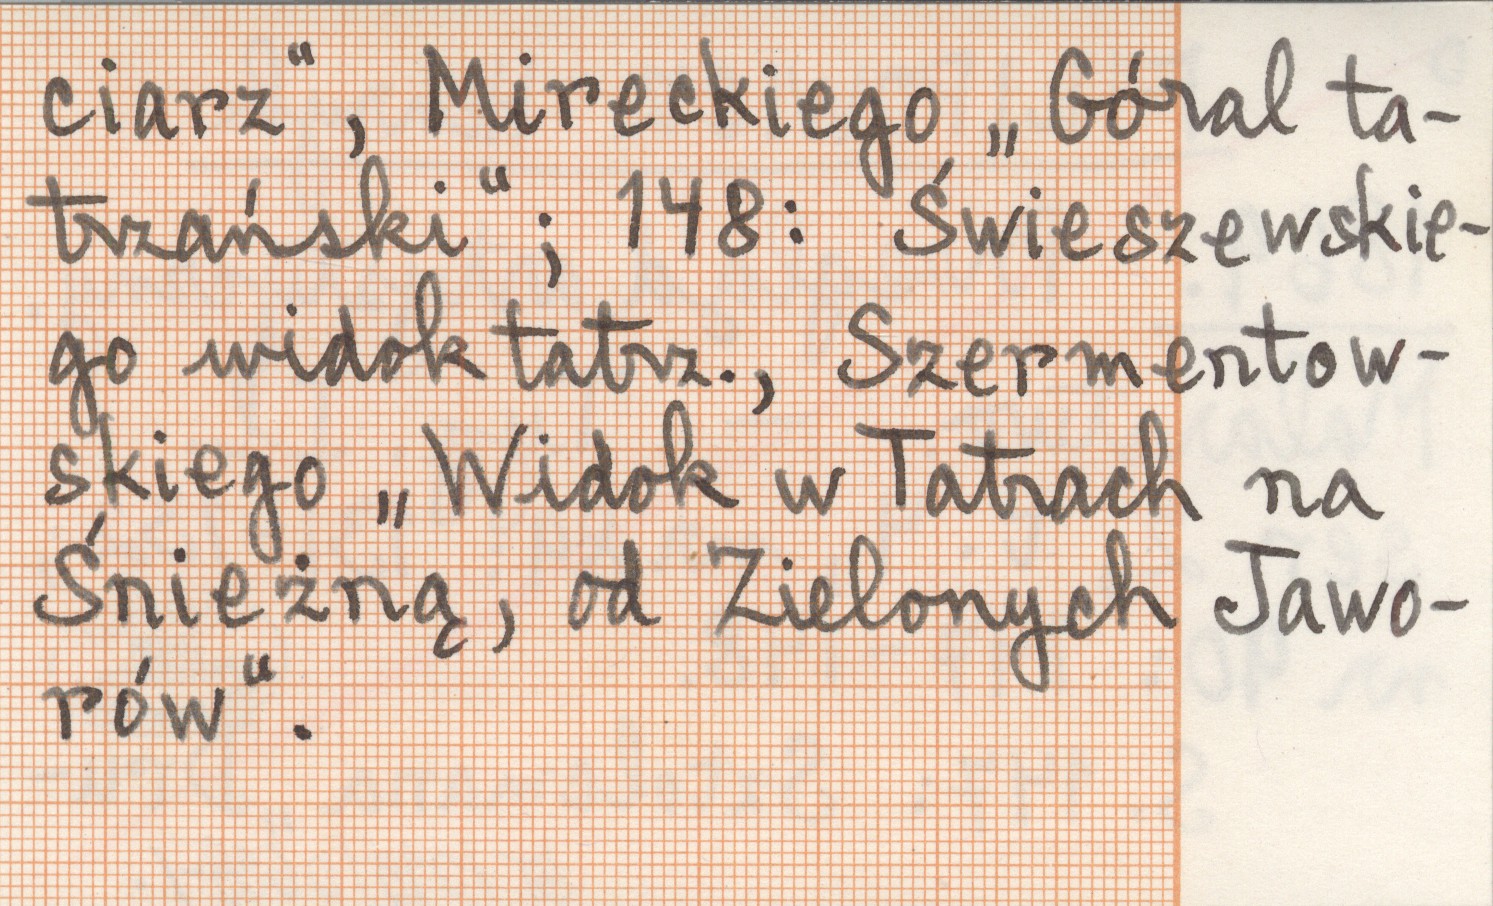 ciarz“, Mireckiego „Góral ta-
trzański“; 148: Świeszewskie-
go widok tatrz., Szermentow-
skiego „Widok w Tatrach na
Śnieżną, od Zielonych Jawo-
rów“.